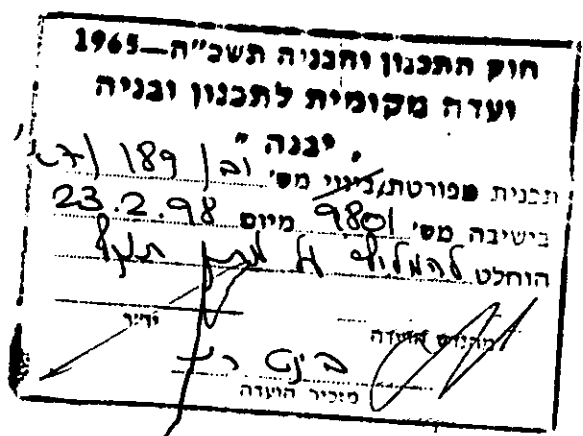 חוק התכנון והבניה תשכ"ה—1965
ועדה מקומית לתכנון ובניה
יבנה
תכנית מפורטת/בינוי מס' יב/189/ד
בישיבה מס' 9801 מיום 23.2.98
הוחלט להמליץ על מתן תוקף
יו"ר
מהנדס הועדה
מזכיר הועדה